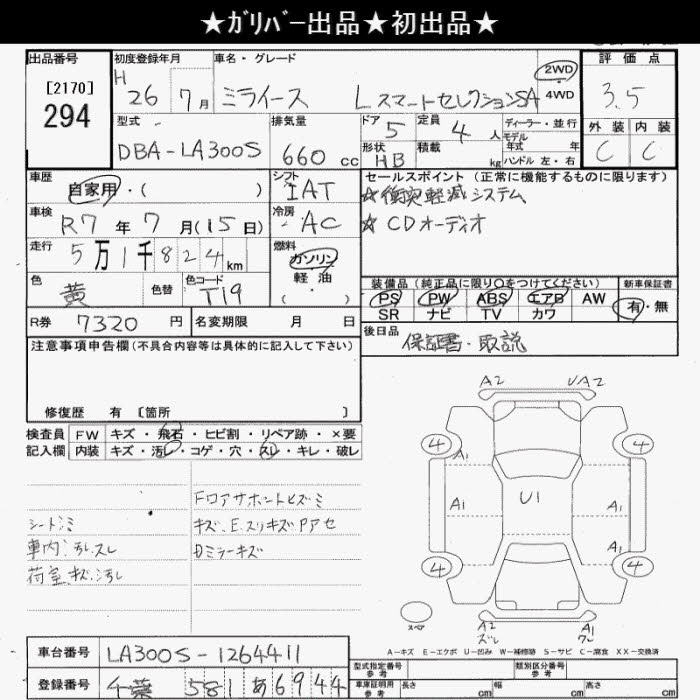 ★ｶﾞﾘﾊﾞｰ出品★初出品★
出品番号
[2170]
294
初度登録年月
H 26 7月
車名・グレード
ミライース L スマートセレクションSA
2WD
・4WD
評価点
3.5
外装 内装
C C
型式
DBA-LA300S
排気量
660 cc
ドア
5
定員
4人
形状
HB
積載
kg
ディーラー・並行
モデル
年式 年
ハンドル 左・右
車歴
自家用・( )
シフト
IAT
車検
R7年7月(15日)
冷房
AC
走行
5万1千824km
燃料
ガソリン
軽油
( ・ )
色
黄
色替
色コード
T19
R券 7320 円
名変期限 月 日
セールスポイント (正常に機能するものに限ります)
☆衝突軽減システム
☆CDオーディオ
装備品 (純正品に限り○をつけてください)
PS PW ABS エアB AW
SR ナビ TV カワ
新車保証書
有・無
後日品
保証書・取説
注意事項申告欄(不具合内容等は具体的に記入して下さい)
修復歴 有 〔箇所 〕
検査員
記入欄
FW キズ・飛石・ヒビ割・リペア跡・×要
内装 キズ・汚レ・コゲ・穴・スレ・キレ・破レ
シートシミ
車内汚レ、スレ
荷室キズ、汚レ
Fロアサポートヒズミ
キズ、E、スリキズPアセ
Dミラーキズ
A2 UA2
4 4
A1
A1 U1 A1
A1
4 4
スペア
A2
ズレ
A1
ワレ
A－キズ E－エクボ U－凹み W－補修跡 S－サビ C－腐食 XX－交換済
車台番号
LA300S-1264411
登録番号
千葉 581 あ 6944
型式指定番号
参考
類別区分番号
参考
車庫証明用
参考
長さ cm
幅 cm
高さ cm